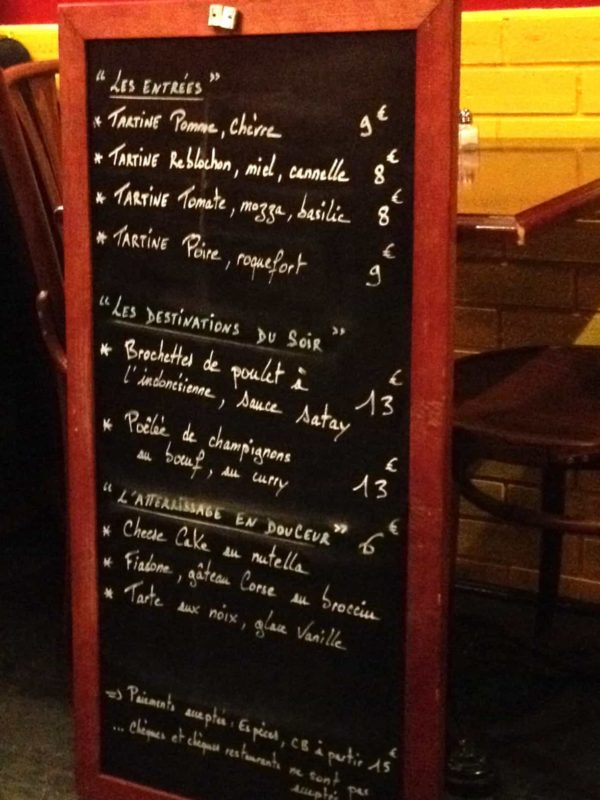 " LES ENTRÉES "
* TARTINE Pomme, chèvre 9€
* TARTINE Reblochon, miel, cannelle 8€
* TARTINE Tomate, mozza, basilic 8€
* TARTINE Poire, roquefort 9€
" LES DESTINATIONS DU SOIR "
* Brochettes de poulet à
l'indonésienne, sauce satay 13€
* Poêlée de champignons
au bœuf, au curry 13€
" L'ATTERRISSAGE EN DOUCEUR " 6€
* Cheese Cake au nutella
* Fiadone, gâteau Corse au brocciu
* Tarte aux noix, glace Vanille
=> Paiements acceptés : Espèces, CB à partir 15€
... Chèques et chèques restaurants ne sont pas
acceptés